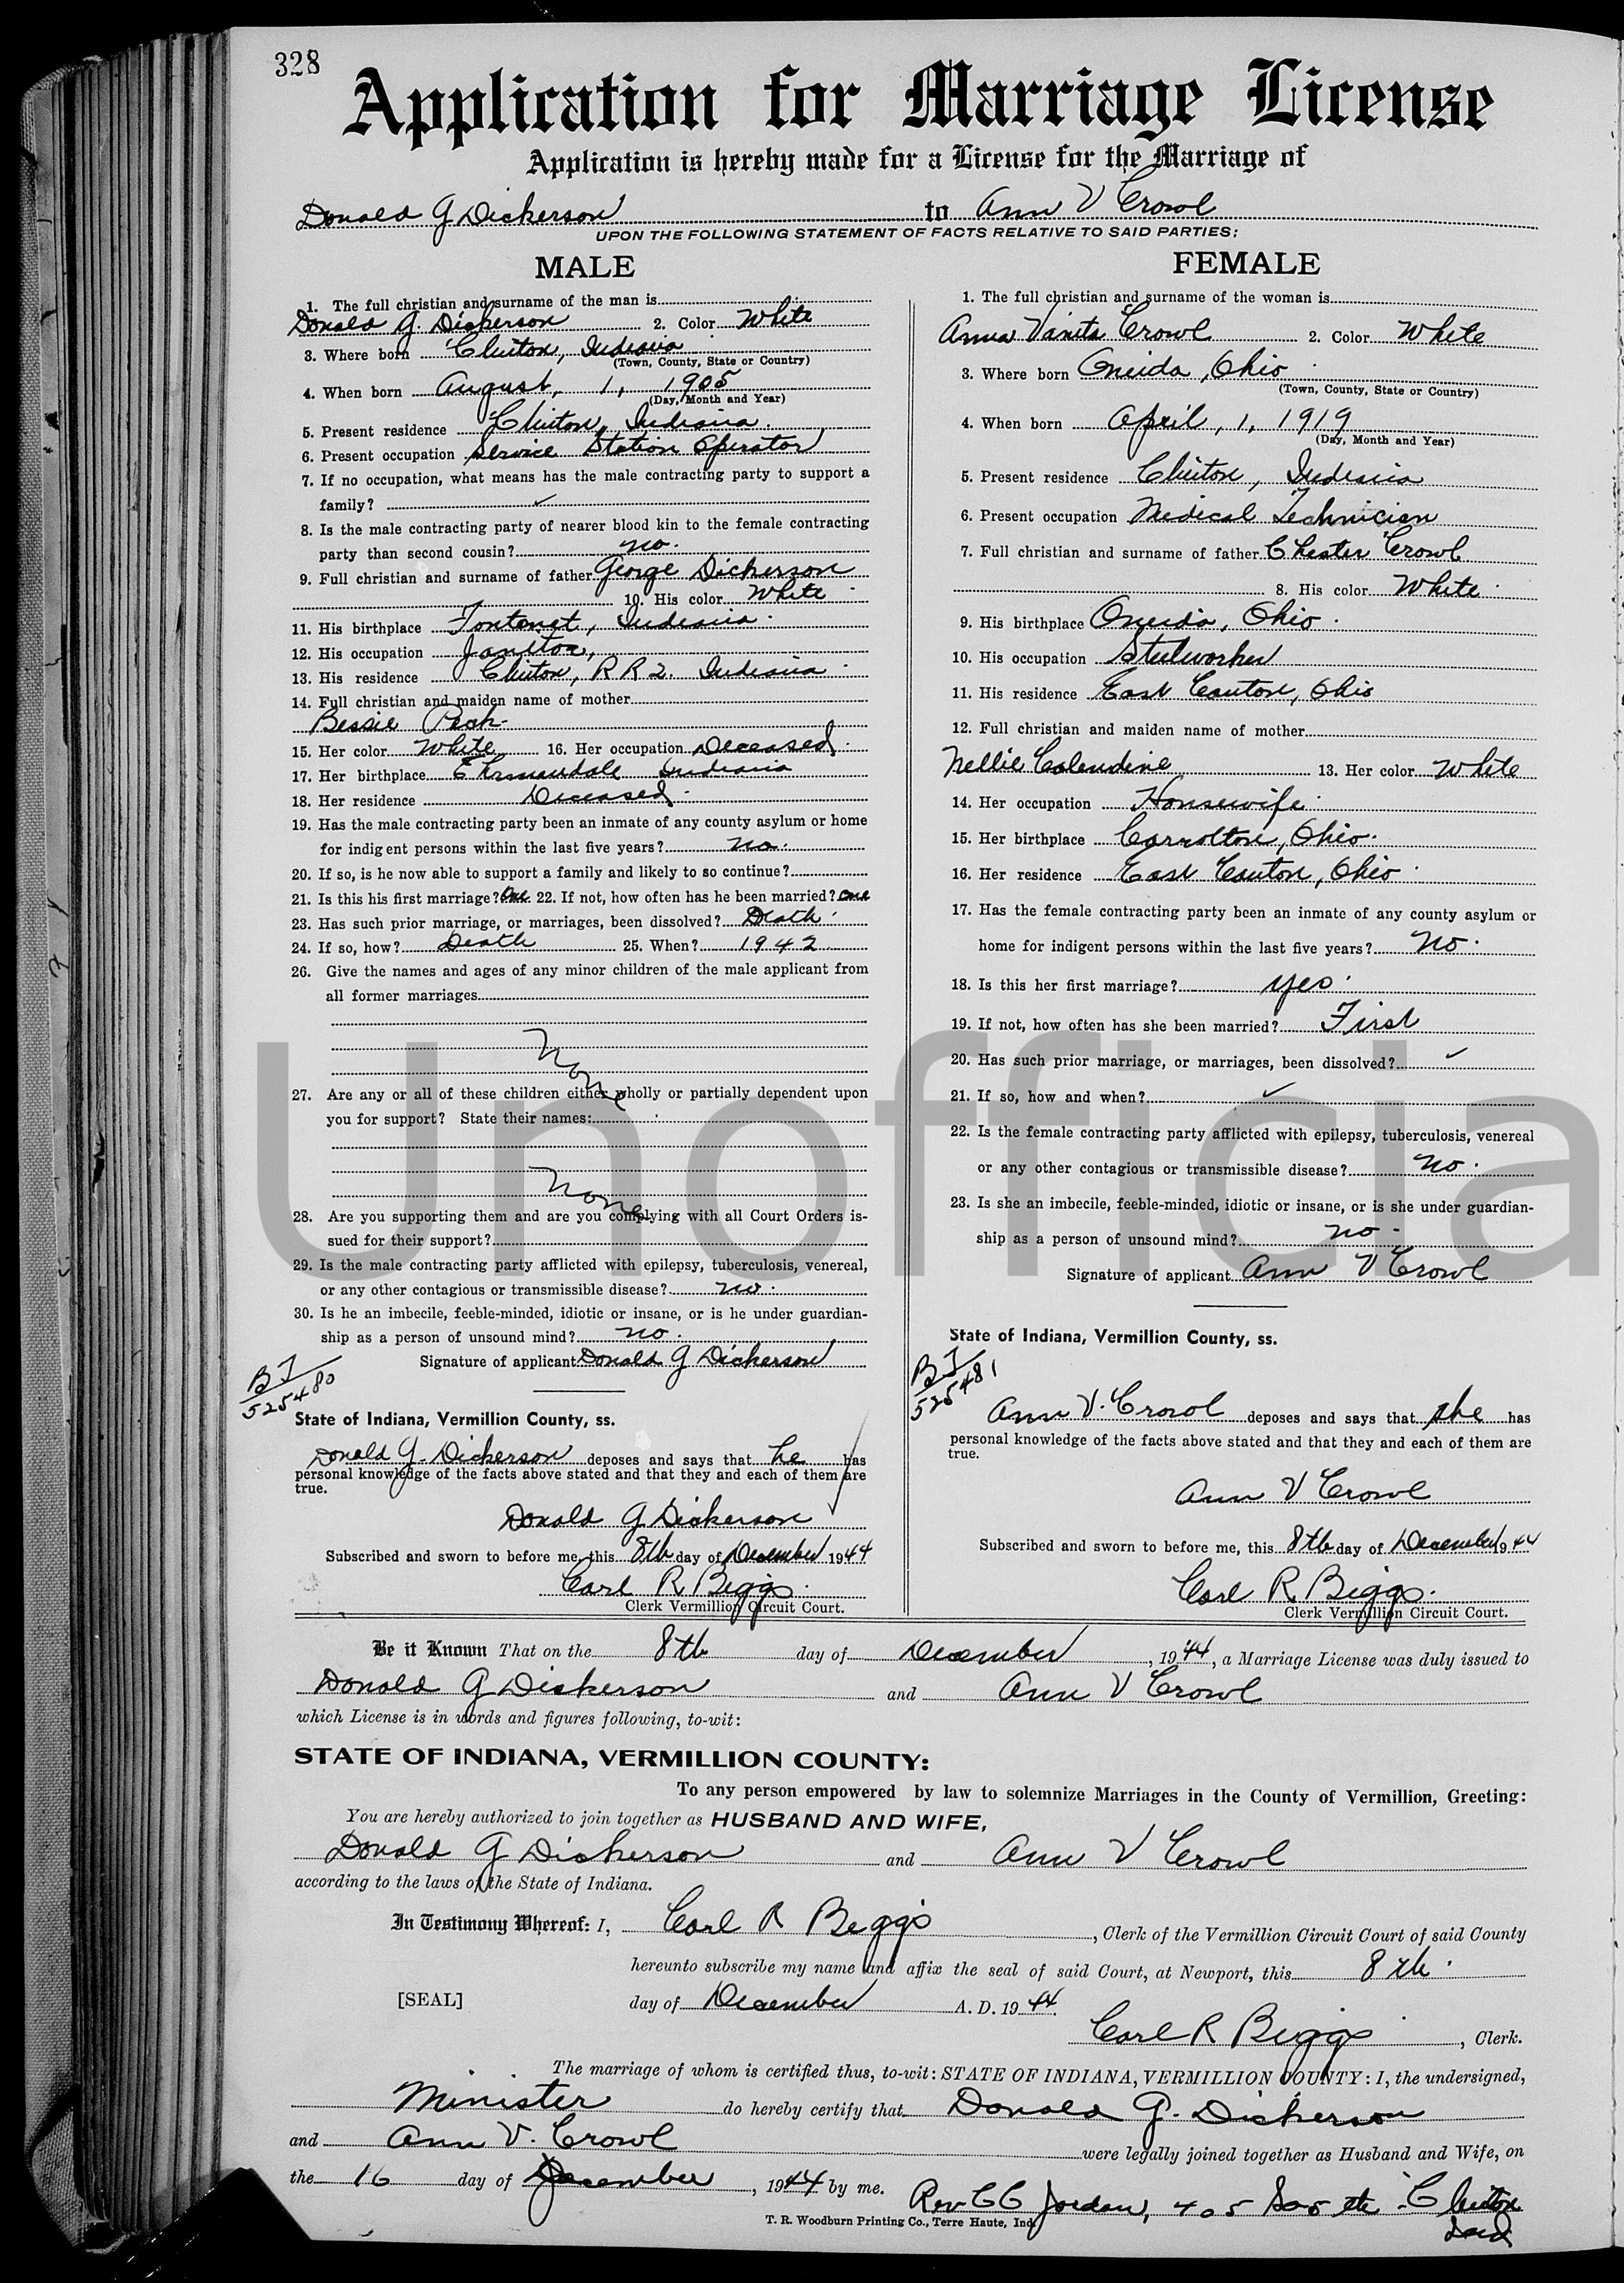 328
Application for Marriage License
Application is hereby made for a License for the Marriage of
Donald G Dickerson to Ann V Crowl
UPON THE FOLLOWING STATEMENT OF FACTS RELATIVE TO SAID PARTIES:
MALE
1. The full christian and surname of the man is
Donald G. Dickerson 2. Color White
3. Where born Clinton, Indiana
(Town, County, State or Country)
4. When born August, 1, 1905
(Day, Month and Year)
5. Present residence Clinton, Indiana.
6. Present occupation Service Station Operator
7. If no occupation, what means has the male contracting party to support a
family? ✓
8. Is the male contracting party of nearer blood kin to the female contracting
party than second cousin? no.
9. Full christian and surname of father George Dickerson
10. His color White
11. His birthplace Fontanet, Indiana.
12. His occupation Janitor,
13. His residence Clinton, R R 2. Indiana
14. Full christian and maiden name of mother
Bessie
15. Her color White 16. Her occupation Deceased.
17. Her birthplace Indiana
18. Her residence Deceased.
19. Has the male contracting party been an inmate of any county asylum or home
for indigent persons within the last five years? no.
20. If so, is he now able to support a family and likely to so continue?
21. Is this his first marriage? One 22. If not, how often has he been married? One
23. Has such prior marriage, or marriages, been dissolved? Death.
24. If so, how? Death 25. When? 1942
26. Give the names and ages of any minor children of the male applicant from
all former marriages
None
27. Are any or all of these children either wholly or partially dependent upon
you for support? State their names:
None
28. Are you supporting them and are you complying with all Court Orders is-
sued for their support?
29. Is the male contracting party afflicted with epilepsy, tuberculosis, venereal,
or any other contagious or transmissible disease? no.
30. Is he an imbecile, feeble-minded, idiotic or insane, or is he under guardian-
ship as a person of unsound mind? no.
Signature of applicant Donald G Dickerson
BT
525480
State of Indiana, Vermillion County, ss.
Donald G. Dickerson deposes and says that he has
personal knowledge of the facts above stated and that they and each of them are
true.
Donald G Dickerson
Subscribed and sworn to before me, this 8th day of December 1944
Carl R Biggs.
Clerk Vermillion Circuit Court.
FEMALE
1. The full christian and surname of the woman is
Anna Vanita Crowl 2. Color White
3. Where born Oneida, Ohio
(Town, County, State or Country)
4. When born April, 1, 1919
(Day, Month and Year)
5. Present residence Clinton, Indiana
6. Present occupation Medical Technician
7. Full christian and surname of father Chester Crowl
8. His color White.
9. His birthplace Oneida, Ohio.
10. His occupation Steelworker
11. His residence East Canton, Ohio
12. Full christian and maiden name of mother
Nellie Calendine 13. Her color White
14. Her occupation Housewife.
15. Her birthplace Carrolton, Ohio.
16. Her residence East Canton, Ohio
17. Has the female contracting party been an inmate of any county asylum or
home for indigent persons within the last five years? No.
18. Is this her first marriage? yes.
19. If not, how often has she been married? First
20. Has such prior marriage, or marriages, been dissolved? ✓
21. If so, how and when? ✓
22. Is the female contracting party afflicted with epilepsy, tuberculosis, venereal
or any other contagious or transmissible disease? no.
23. Is she an imbecile, feeble-minded, idiotic or insane, or is she under guardian-
ship as a person of unsound mind? no.
Signature of applicant Ann V Crowl
State of Indiana, Vermillion County, ss.
BT
525481
Ann V. Crowl deposes and says that she has
personal knowledge of the facts above stated and that they and each of them are
true.
Ann V Crowl
Subscribed and sworn to before me, this 8th day of December 1944
Carl R Biggs.
Clerk Vermillion Circuit Court.
Unofficia
Be it Known That on the 8th day of December, 1944, a Marriage License was duly issued to
Donald G Dickerson and Ann V Crowl
which License is in words and figures following, to-wit:
STATE OF INDIANA, VERMILLION COUNTY:
To any person empowered by law to solemnize Marriages in the County of Vermillion, Greeting:
You are hereby authorized to join together as HUSBAND AND WIFE,
Donald G Dickerson and Ann V Crowl
according to the laws of the State of Indiana.
In Testimony Whereof: I, Carl R Biggs, Clerk of the Vermillion Circuit Court of said County
hereunto subscribe my name and affix the seal of said Court, at Newport, this 8th.
[SEAL] day of December A. D. 1944.
Carl R Biggs, Clerk.
The marriage of whom is certified thus, to-wit: STATE OF INDIANA, VERMILLION COUNTY: I, the undersigned,
Minister do hereby certify that Donald G. Dickerson
and Ann V. Crowl were legally joined together as Husband and Wife, on
the 16 day of December, 1944 by me. Rev C C Jordan, 405 So 5th Clinton
Ind
T. R. Woodburn Printing Co., Terre Haute, Ind.